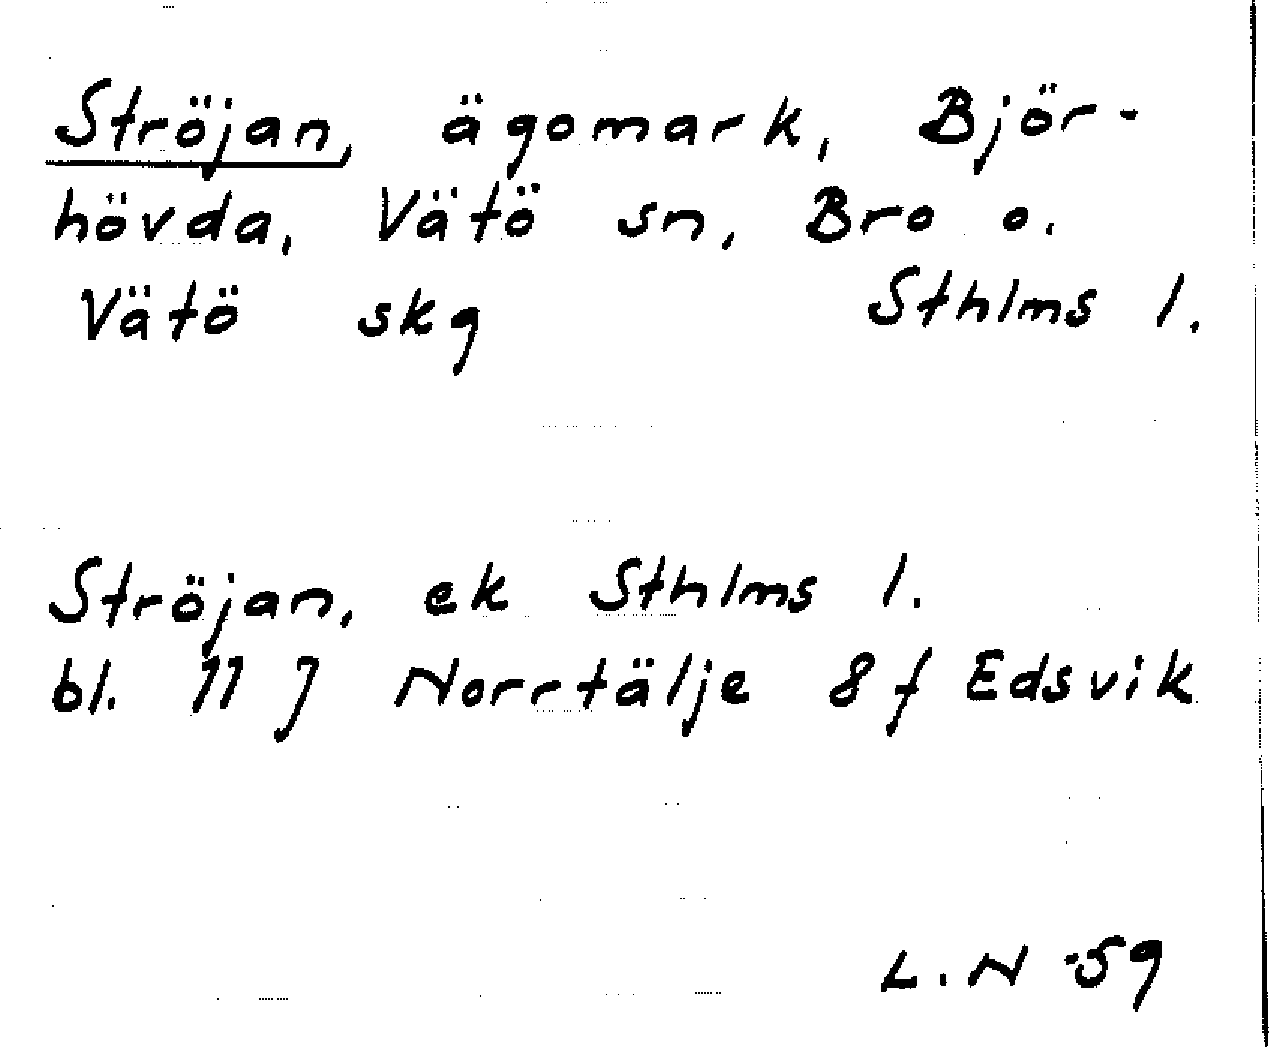 Ströjan, ägomark, Björ-
hövda, Vätö sn, Bro o.
Vätö skg Sthlms l.
Ströjan, ek Sthlms l.
bl. 11 J Norrtälje 8 f Edsvik
L.N -59